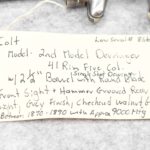 Colt Low Serial #
Model- 2nd Model Derringer
41 Rim Fire Cal.-
w/2½" Barrel with Round Blade
Front Sight + Hammer Grooved Rear
Grey Finish, Checkered walnut
Between 1870-1890 with Approx 9000 Mfg